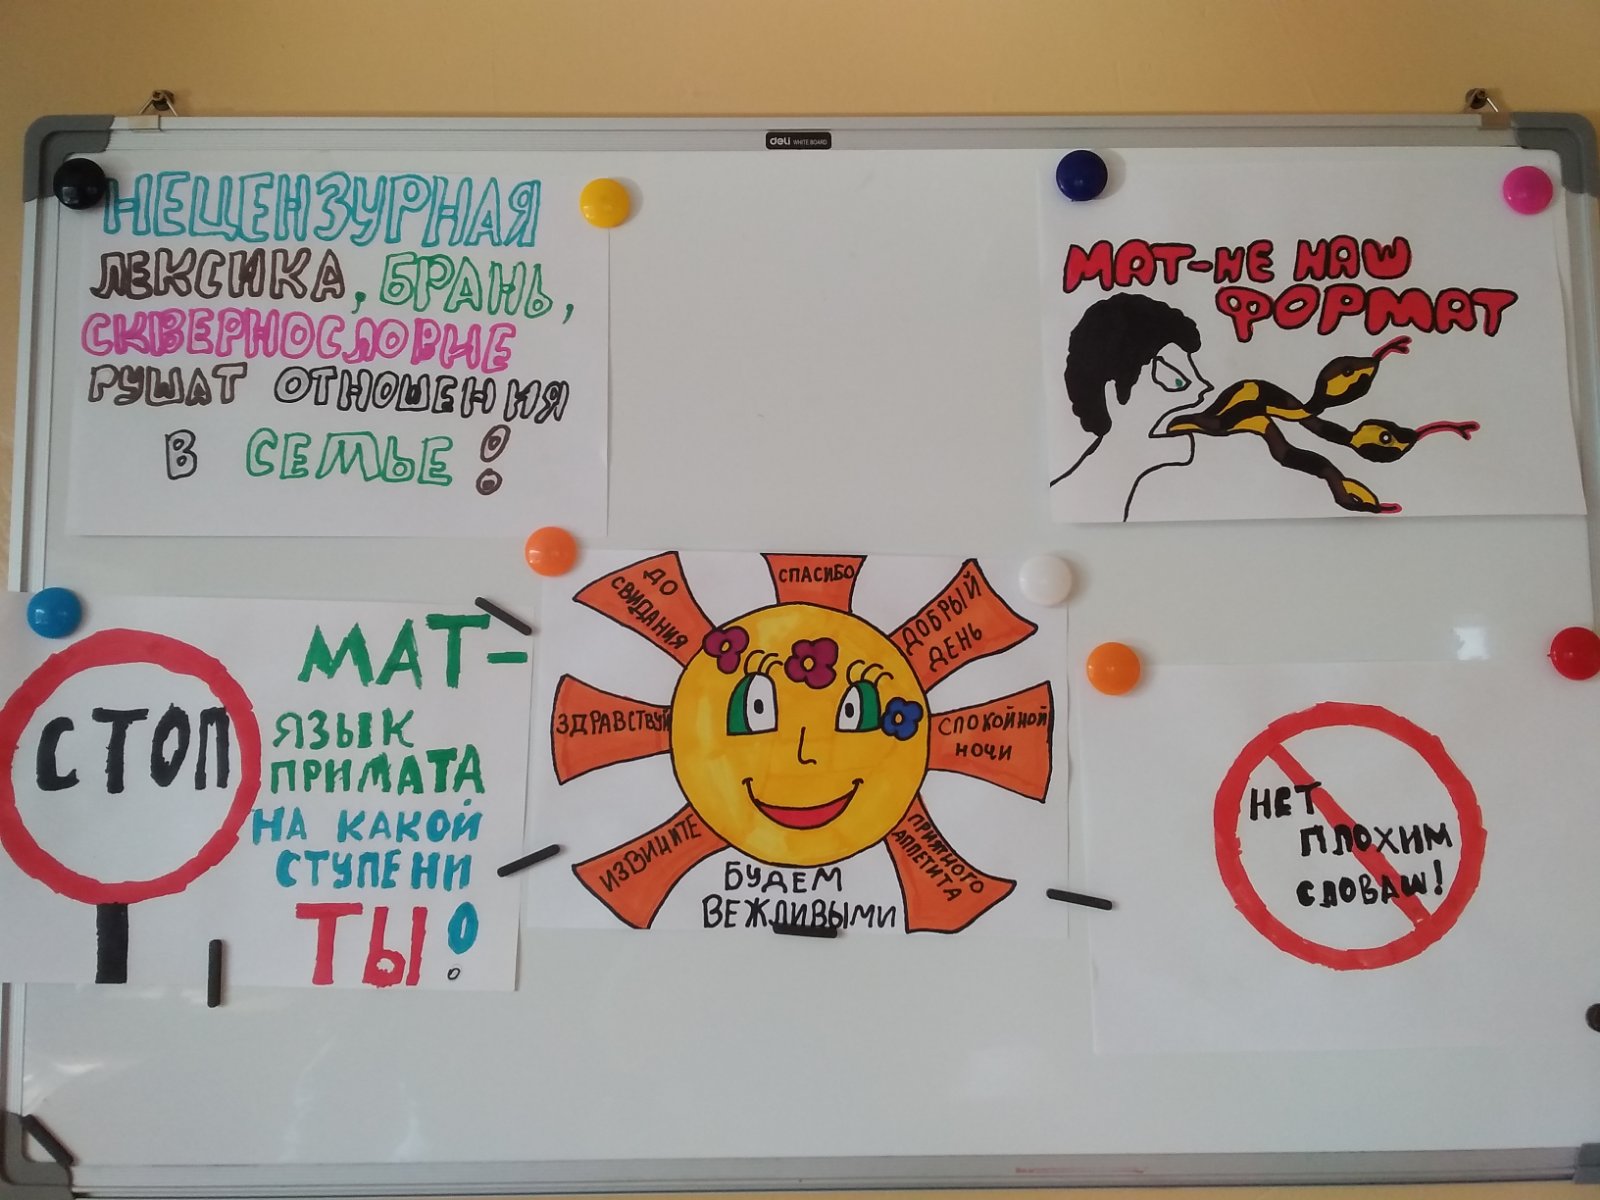 deli WHITE BOARD
НЕЦЕНЗУРНАЯ
ЛЕКСИКА, БРАНЬ,
СКВЕРНОСЛОВИЕ
РУШАТ ОТНОШЕНИЯ
В СЕМЬЕ!
МАТ-НЕ НАШ
ФОРМАТ
СТОП
МАТ-
ЯЗЫК
ПРИМАТА
НА КАКОЙ
СТУПЕНИ
ТЫ!
ДО
СВИДАНИЯ
СПАСИБО
ДОБРЫЙ
ДЕНЬ
ЗДРАВСТВУЙ
СПОКОЙНОЙ
НОЧИ
ИЗВИЦИТЕ
ПРИЯТНОГО
АППЕТИТА
БУДЕМ
ВЕЖЛИВЫМИ
НЕТ
ПЛОХИМ
СЛОВАМ!